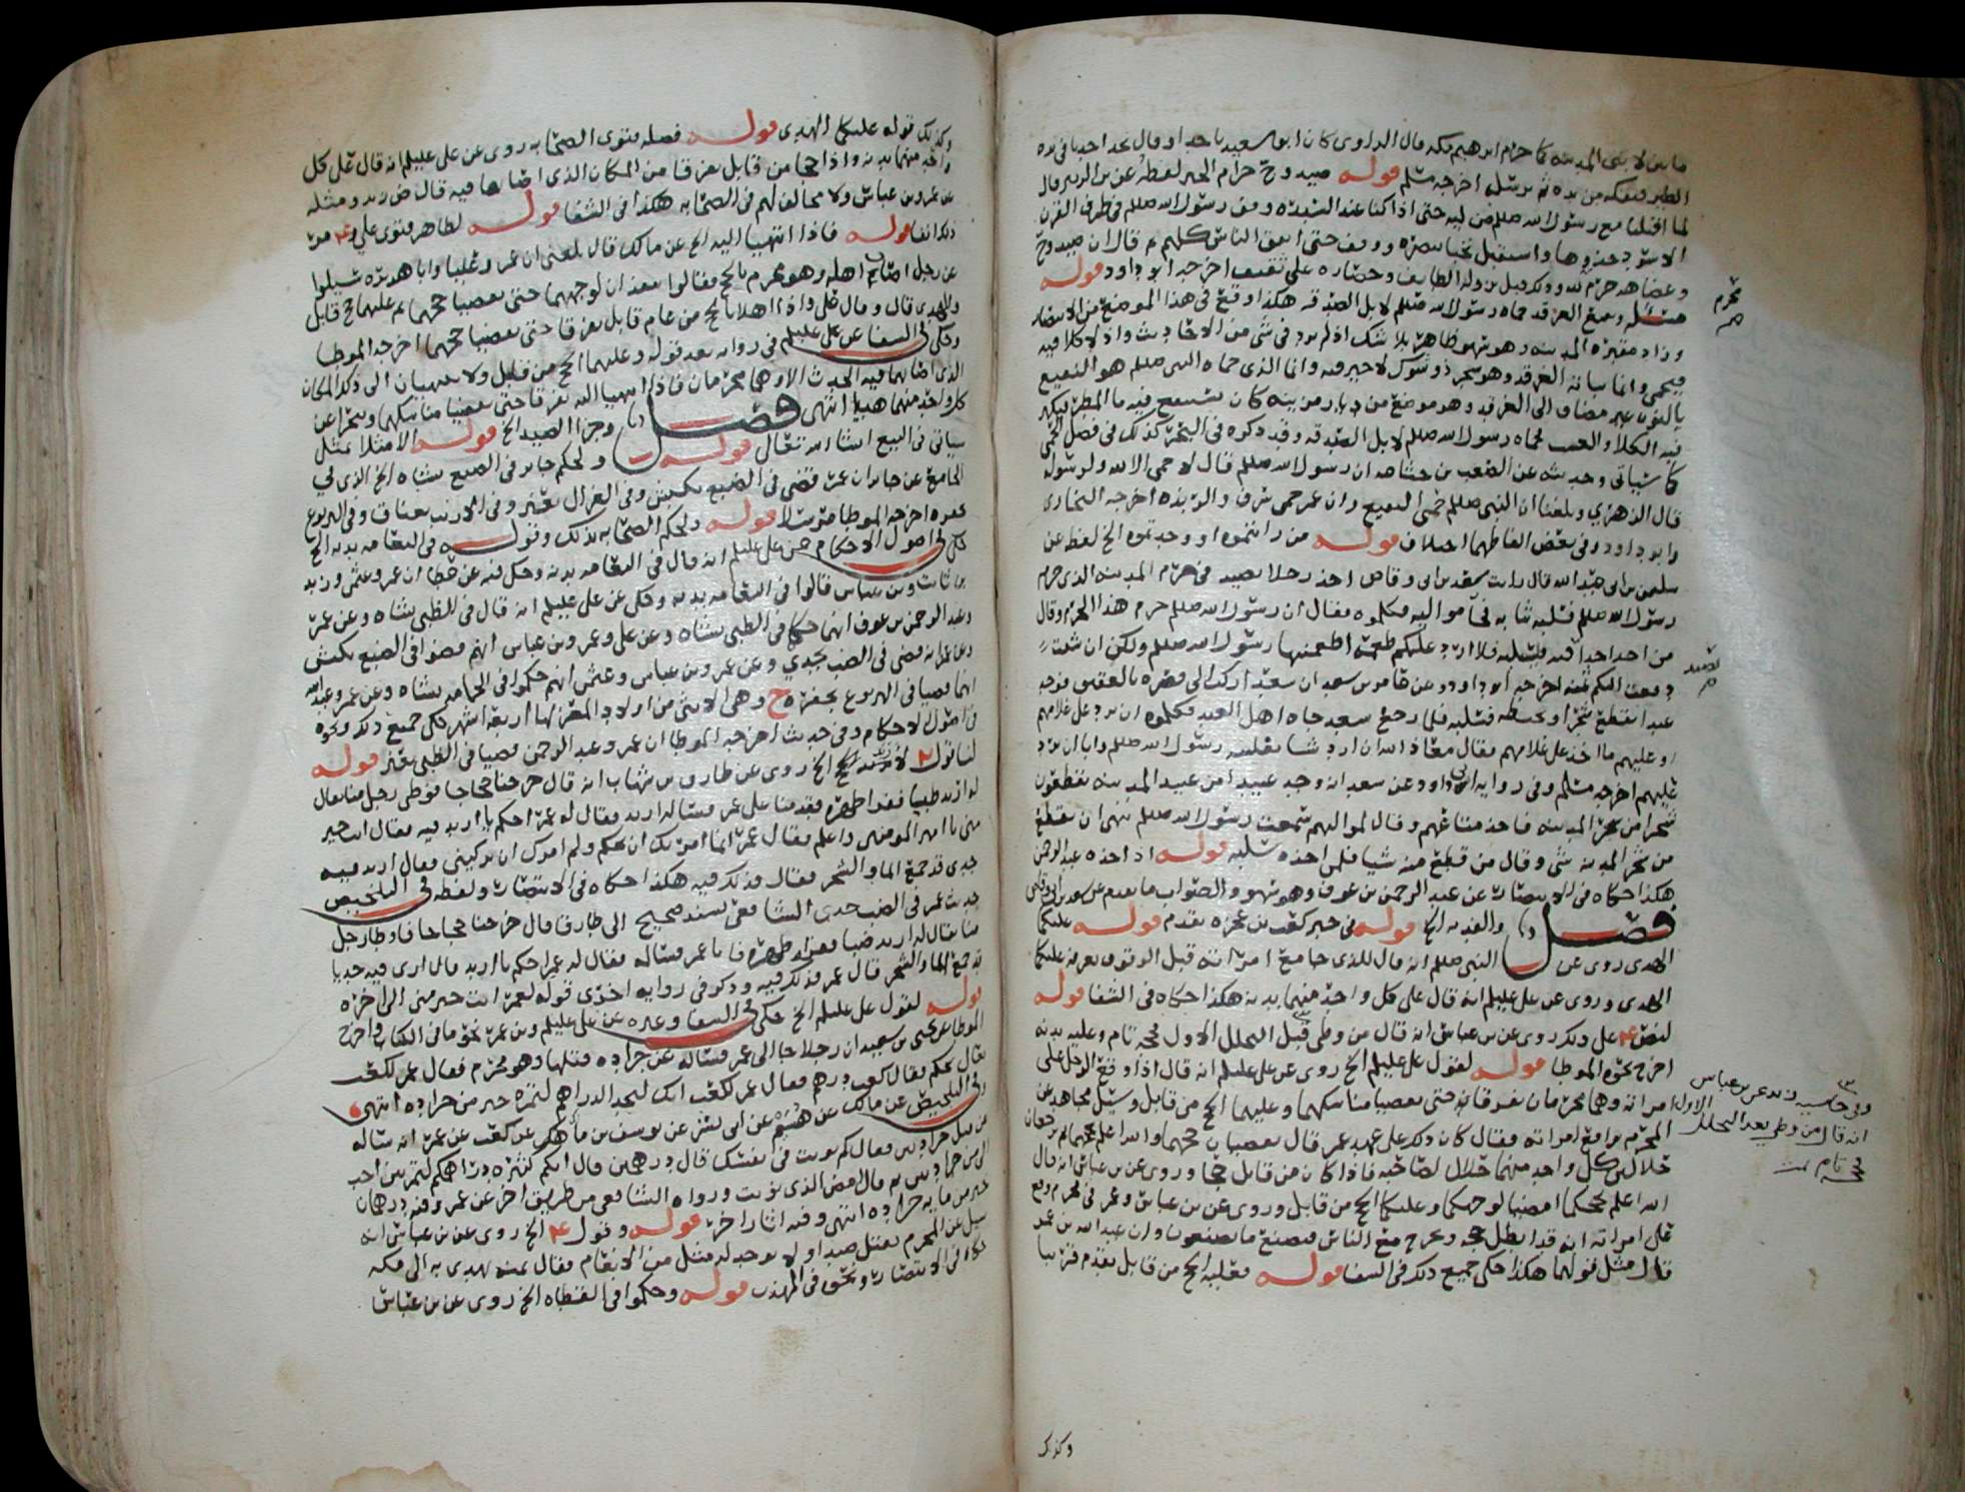 ما بين لابتي المدينة كما حرم ابرهيم مكه قال الراوي كان ابو سعيد ياخذ او قال يجد احدنا في يده
الطير فيفكه من يده ثم يرسله اخرجه مسلم قوله صيد وج حرام الخبر لفظه عن بن الزبير قال
لما اقبلنا مع رسول الله صللم من ليه حتى اذا كنا عند السدره وقف رسول الله صللم في طرف القرن
الاسود حذوها واستقبل نخبا ببصره ووقف حتى اتفق الناس كلهم ثم قال ان صيد وج
وعضاهه حرم لله وذلك قبل نزوله الطايف وحصاره على ثقيف اخرجه ابو داود قوله
مسئله وبقيع الغرقد حماه رسول الله صللم لابل الصدقه هكذا وقع في هذا الموضع من الانتصار
وزاد مقبرة المدينه وهو سهو ظاهر بلا شك اذ لم يرد في شي من الاحاديث واذ لا كلا فيه
فيحمى وانما نباته الغرقد وهو شجر ذو شوك لا خير فيه وانما الذي حماه النبي صللم هو النقيع
بالنون غير مضاف الى الغرقد وهو موضع من ديار مزينه كان يستنقع فيه ما المطر فيكثر
فيه الكلا والعشب فحماه رسول الله صللم لابل الصدقه وقد ذكره في البحر كذلك في فصل الحمى
كما سياتي وحديثه عن الصعب بن جثامه ان رسول الله صللم قال لا حمى الا لله ولرسوله
قال الزهري وبلغنا ان النبي صللم حمى النقيع وان عمر حمى شرف والربذه اخرجه البخاري
وابو داود وفي بعض الفاظهما اختلاف قوله من رايتموه او وجدتموه الخ لفظه عن
سليمن بن ابي عبد الله قال رايت سعد بن ابي وقاص اخذ رجلا يصيد في حرم المدينه الذي حرم
رسول الله صللم فسلبه ثيابه فجا مواليه فكلموه فقال ان رسول الله صللم حرم هذا الحرم وقال
من اخذ احدا فيه فليسلبه فلا ارد عليكم طعمة اطعمنيها رسول الله صللم ولكن ان شئتم
دفعت اليكم ثمنه اخرجه ابو داود وعن عامر بن سعد ان سعدا ركب الى قصره بالعقيق فوجد
عبدا يقطع شجرا او يخبطه فسلبه فلما رجع سعد جاه اهل العبد فكلموه ان يرد على غلامهم
او عليهم ما اخذ على غلامهم فقال معاذ الله ان ارد شيا نفلنيه رسول الله صللم وابا ان يرد
عليهم اخرجه مسلم وفي روايه لابي داود عن سعد انه وجد عبيدا من عبيد المدينه يقطعون
شجرا من شجر المدينه فاخذ متاعهم وقال لمواليهم سمعت رسول الله صللم ينهى ان يقطع
من شجر المدينه شي وقال من قطع منه شيا فلمن اخذه سلبه قوله اذ اخذه عبد الرحمن
هكذا حكاه في الانتصار عن عبد الرحمن بن عوف وهو سهو والصواب ما تقدم عن سعد بن ابي وقاص
فصل والفديه الخ قوله في خبر كعب بن عجره تقدم قوله عليكما
الهدى روى عن النبي صللم انه قال للذي جامع امراته قبل الوقوف بعرفه عليكما
الهدى وروى عن علي عليلم انه قال على كل واحد منهما بدنه هكذا حكاه في الشفا قوله
لنص ع على ذلك روى عن بن عباس انه قال من وطي قبل التحلل الاول فحجه تام وعليه بدنه
اخرج نحوه الموطا قوله لقول علي عليلم الخ روى عن علي عليلم انه قال اذا وقع الرجل على
امراته وهما محرمان يفرقان حتى يقضيا مناسكهما وعليهما الحج من قابل وسئل مجاهد عن
المحرم يواقع امراته فقال كان ذلك على عهد عمر قال يقضيان حجهما والله اعلم بحجهما ثم يرجعان
حلال كل واحد منهما حلال لصاحبه فاذا كان من قابل حجا وروى عن بن عباس انه قال
الله اعلم بحجكما امضيا لوجهكما وعليكما الحج من قابل وروى عن بن عباس وعمر في محرم وقع
على امراته انه قد ابطل حجه ويخرج مع الناس فيصنع ما يصنعون وان عبد الله بن عمر
قال مثل قولهما هكذا حكى جميع ذلك في الشفا قوله فعليه الحج من قابل تقدم قريبا
محرم
صح
تصيد
وفي حاشيه وعن بن عباس
انه قال من وطي بعد التحلل الاول
فحجه تام تمت
وكذلك
وكذلك قوله عليكما الهدى قوله فصله فتوى الصحابه روى عن علي عليلم انه قال على كل
واحد منهما بدنه واذا حجا من قابل تفرقا من المكان الذي اصابها فيه قال ض زيد ومثله
عن عمر وبن عباس ولا مخالف لهم في الصحابه هكذا في الشفا قوله لظاهر فتوى علي و ع مر
ذلك انفا قوله فاذا انتهيا اليه الخ عن مالك قال بلغني ان عمر وعليا وابا هريره سيلوا
عن رجل اصاب اهله وهو محرم بالحج فقالوا ينفذان لوجههما حتى يقضيا حجهما ثم عليهما حج قابل
والهدي قال وقال علي واذا اهلا بالحج من عام قابل تفرقا حتى يقضيا حجهما اخرجه الموطا
وحكى في الشفا عن علي عليلم في روايه بعد قوله وعليهما الحج من قابل ولا ينتهيان الى ذلك المكان
الذي اصابهما فيه الحدث الا وهما محرمان فاذا انتهيا اليه تفرقا حتى يقضيا مناسكهما وينحرا عن
كل واحد منهما هديا انتهى فصل وجزا الصيد الخ قوله الا مثلا بمثل
سياتي في البيع انشا الله تعالى قوله ولحكم جابر في الضبع بشاه الخ الذي في
الجامع عن جابر ان عمر قضى في الضبع بكبش وفي الغزال بعنز وفي الارنب بعناق وفي اليربوع
بجفره اخرجه الموطا مرسلا قوله ولحكم الصحابه بذلك وقوله في النعامه بدنه الخ
حكى في اصول الاحكام عن علي عليلم انه قال في النعامه بدنه وحكى فيه عن عطا ان عمر وعثمن وزيد
بن ثابت وبن عباس قالوا في النعامه بدنه وحكى عن علي عليلم انه قال في الظبي بشاه وعن عمر
وعبد الرحمن بن عوف انهما حكما في الظبي بشاه وعن علي وعمر وبن عباس انهم قضوا في الضبع بكبش
وعن عمر انه قضى في الضب بجدي وعن عمر وبن عباس وعثمن انهم حكموا في الحمامه بشاه وعن عمر وعبد الله
انهما قضيا في اليربوع بجفره ح وهي الانثى من اولاد المعز لها اربعة اشهر حكى جميع ذلك ونحوه
في اصول الاحكام وفي حديث اخرجه الموطا ان عمر وعبد الرحمن قضيا في الظبي بعنز قوله
لنا قول الخ روى عن طارق بن شهاب انه قال خرجنا حجاجا فوطى رجل منا يقال
له اربد ظبيا ففزر ظهره فقدمنا على عمر فساله اربد فقال له عمر احكم يا اربد فيه فقال انت خير
مني يا امير المومنين واعلم فقال عمر انما امرتك ان تحكم ولم امرك ان تزكيني فقال اربد فيه
جدي قد جمع الما والشجر فقال فذلك فيه هكذا حكاه في الانتصار ولفظه في التلخيص
حديث عمر في الضب جدي الشافعي بسند صحيح الى طارق قال خرجنا حجاجا فاوطا رجل
منا يقال له اربد ضبا ففزر ظهره فاتا عمر فساله فقال له عمر احكم يا اربد قال ارى فيه جديا
قد جمع الما والشجر قال عمر فذلك فيه وذكر في روايه اخرى قوله لعمر انت خير مني الى اخره
قوله لقول علي عليلم الخ حكى في الشفا وغيره عن علي عليلم وبن عمر نحو ما في الكتاب واخرج
الموطا عن يحيى بن سعيد ان رجلا جا الى عمر فساله عن جراده قتلها وهو محرم فقال عمر لكعب
تعال نحكم فقال كعب درهم فقال عمر لكعب انك لتجد الدراهم لتمرة خير من جراده انتهى
وفي التلخيص عن مالك عن هشيم عن ابي بشر عن يوسف بن ماهك عن كعب عن عمر انه ساله
عن قتل جرادتين فقال كم نويت في نفسك قال درهمين قال انكم كثيره دراهمكم لتمرتين احب
الي من جرادتين ثم قال امض الذي نويت ورواه الشافعي من طريق اخرى عن عمر وفيه درهمان
خير من مايه جراده انتهى وفيه اثار اخر قوله وقول ع الخ روى عن بن عباس انه
سيل عن المحرم يقتل صيدا ولا يوجد له مثل من الانعام فقال ثمنه يهدى به الى مكه
حكاه في الانتصار ونحوه في المهذب قوله وحكموا في القطاه الخ روى عن بن عباس